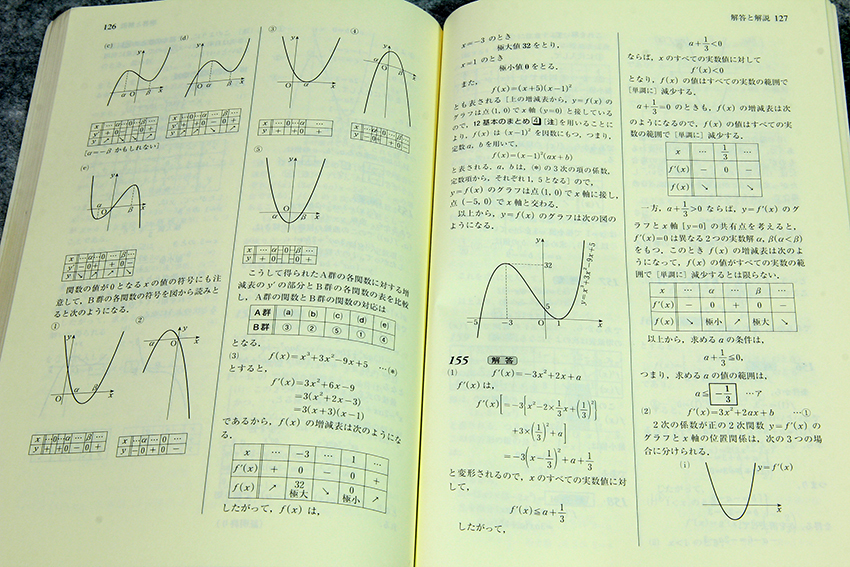 126
(c)
(d)
[α=−β かもしれない]
(e)
関数の値が0となるxの値の符号にも注
意して,B群の各関数の符号を図から読みと
ると次のようになる.
①
②
③
④
⑤
こうして得られたA群の各関数に対する増
減表のy′の部分とB群の各関数の表を比較
し,A群の関数とB群の関数の対応は
A群 (a) (b) (c) (d) (e)
B群 ③ ② ⑤ ① ④
となる.
(3) f(x)=x³+3x²−9x+5 …(*)
とすると,
f′(x)=3x²+6x−9
=3(x²+2x−3)
=3(x+3)(x−1)
であるから,f(x)の増減表は次のようにな
る.
x … −3 … 1 …
f′(x) + 0 − 0 +
f(x) ↗ 32 極大 ↘ 0 極小 ↗
したがって,f(x)は,
解答と解説 127
x=−3 のとき
極大値32をとり,
x=1 のとき
極小値0をとる.
また,
f(x)=(x+5)(x−1)²
とも表される[上の増減表から,y=f(x)の
グラフは点(1, 0)でx軸(y=0)と接している
ので,12 基本のまとめ 4 [注]を用いることに
より,f(x)は(x−1)²を因数にもつ.つまり,
定数a, bを用いて,
f(x)=(x−1)²(ax+b)
と表される.a, bは,(*)の3次の項の係数,
定数項から,それぞれ1, 5となる]ので,
y=f(x)のグラフは点(1, 0)でx軸に接し,
点(−5, 0)でx軸と交わる.
以上から,y=f(x)のグラフは次の図の
ようになる.
y
32
5
−5
−3
O
1
x
y=x³+3x²−9x+5
155 解答
(1) f′(x)=−3x²+2x+a
f′(x)は,
f′(x)=−3{x²−2×1/3x+(1/3)²}
+3×(1/3)²+a
=−3(x−1/3)²+a+1/3
と変形されるので,xのすべての実数値に対
して,
f′(x)≦a+1/3
したがって,
a+1/3<0
ならば,xのすべての実数値に対して
f′(x)<0
となり,f(x)の値はすべての実数の範囲で
[単調に]減少する.
a+1/3=0のときも,f(x)の増減表は次
のようになるので,f(x)の値はすべての実
数の範囲で[単調に]減少する.
x … 1/3 …
f′(x) − 0 −
f(x) ↘ ↘
一方,a+1/3>0 ならば,y=f′(x)のグ
ラフとx軸[y=0]の共有点を考えると,
f′(x)=0は異なる2つの実数解α, β(α<β)
をもつ.このときf(x)の増減表は次のよ
うになって,f(x)の値がすべての実数の範
囲で[単調に]減少するとは限らない.
x … α … β …
f′(x) − 0 + 0 −
f(x) ↘ 極小 ↗ 極大 ↘
以上から,求めるaの条件は,
a+1/3≦0,
つまり,求めるaの値の範囲は,
a≦−1/3 …ア
(2) f′(x)=3x²+2ax+b …①
2次の係数が正の2次関数y=f′(x)の
グラフとx軸の位置関係は,次の3つの場
合に分けられる.
(i)
y=f′(x)
x